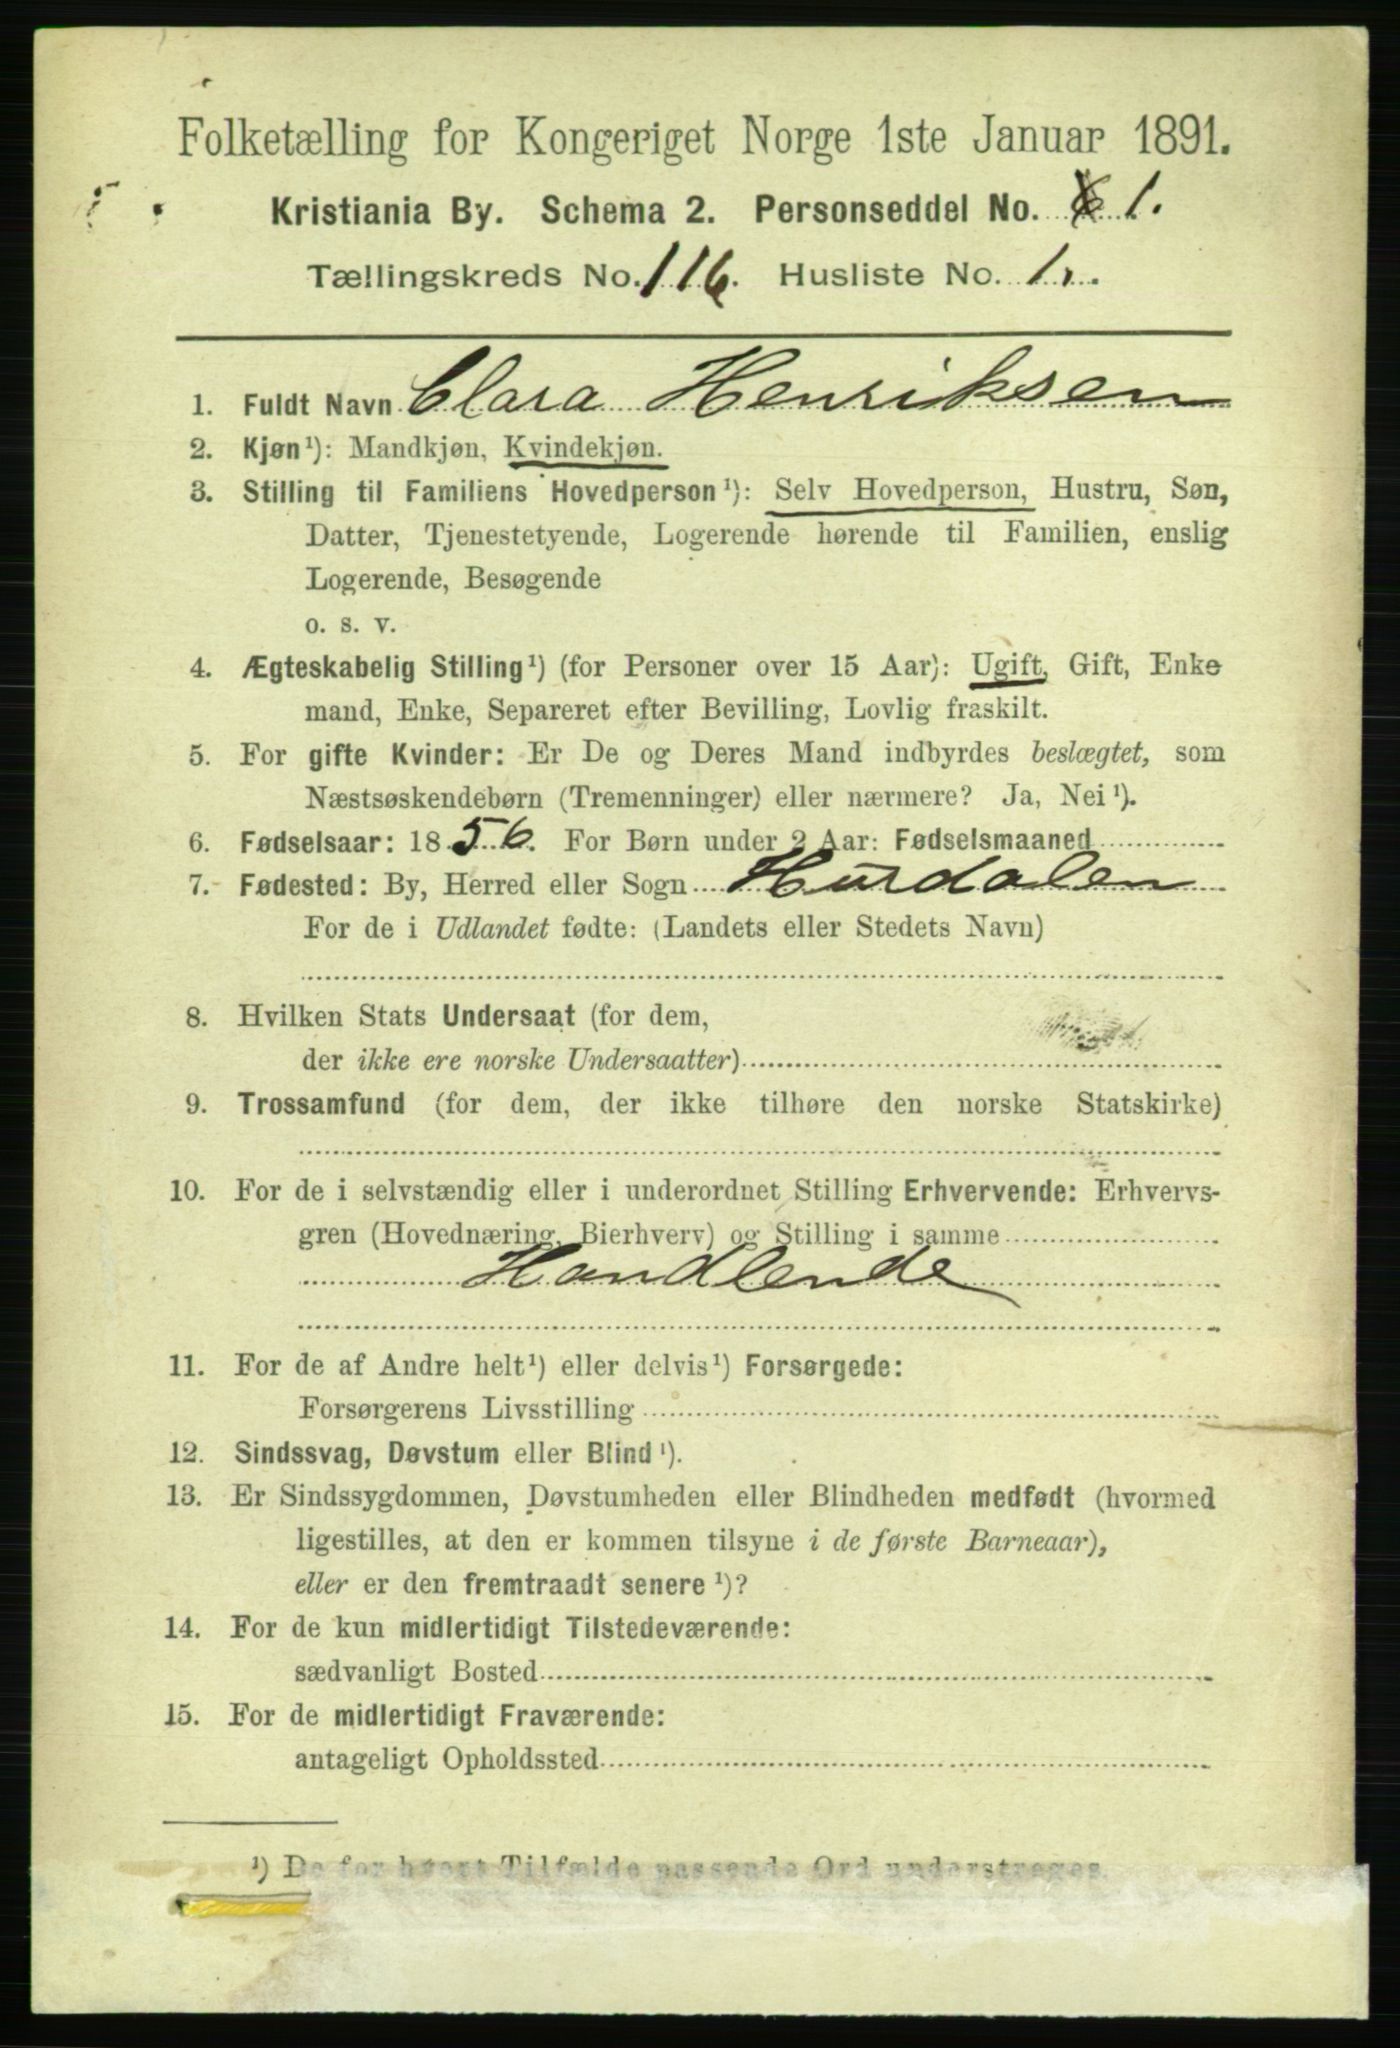 Folketælling for Kongeriget Norge 1ste Januar 1891.
Kristiania By. Schema 2. Personseddel No. 1.
Tællingskreds No. 116. Husliste No. 1.
1. Fuldt Navn Clara Henriksen
2. Kjøn¹): Mandkjøn, Kvindekjøn.
3. Stilling til Familiens Hovedperson¹): Selv Hovedperson, Hustru, Søn,
Datter, Tjenestetyende, Logerende hørende til Familien, enslig
Logerende, Besøgende
o. s. v.
4. Ægteskabelig Stilling¹) (for Personer over 15 Aar): Ugift, Gift, Enke
mand, Enke, Separeret efter Bevilling, Lovlig fraskilt.
5. For gifte Kvinder: Er De og Deres Mand indbyrdes beslægtet, som
Næstsøskendebørn (Tremenninger) eller nærmere? Ja, Nei¹).
6. Fødselsaar: 1856. For Børn under 2 Aar: Fødselsmaaned
7. Fødested: By, Herred eller Sogn Hurdalen
For de i Udlandet fødte: (Landets eller Stedets Navn)
8. Hvilken Stats Undersaat (for dem,
der ikke ere norske Undersaatter)
9. Trossamfund (for dem, der ikke tilhøre den norske Statskirke)
10. For de i selvstændig eller i underordnet Stilling Erhvervende: Erhvervs-
gren (Hovednæring, Bierhverv) og Stilling i samme
Handlende
11. For de af Andre helt¹) eller delvis¹) Forsørgede:
Forsørgerens Livsstilling
12. Sindssvag, Døvstum eller Blind¹).
13. Er Sindssygdommen, Døvstumheden eller Blindheden medfødt (hvormed
ligestilles, at den er kommen tilsyne i de første Barneaar),
eller er den fremtraadt senere¹)?
14. For de kun midlertidigt Tilstedeværende:
sædvanligt Bosted
15. For de midlertidigt Fraværende:
antageligt Opholdssted
¹) De for hvert Tilfælde passende Ord understreges.